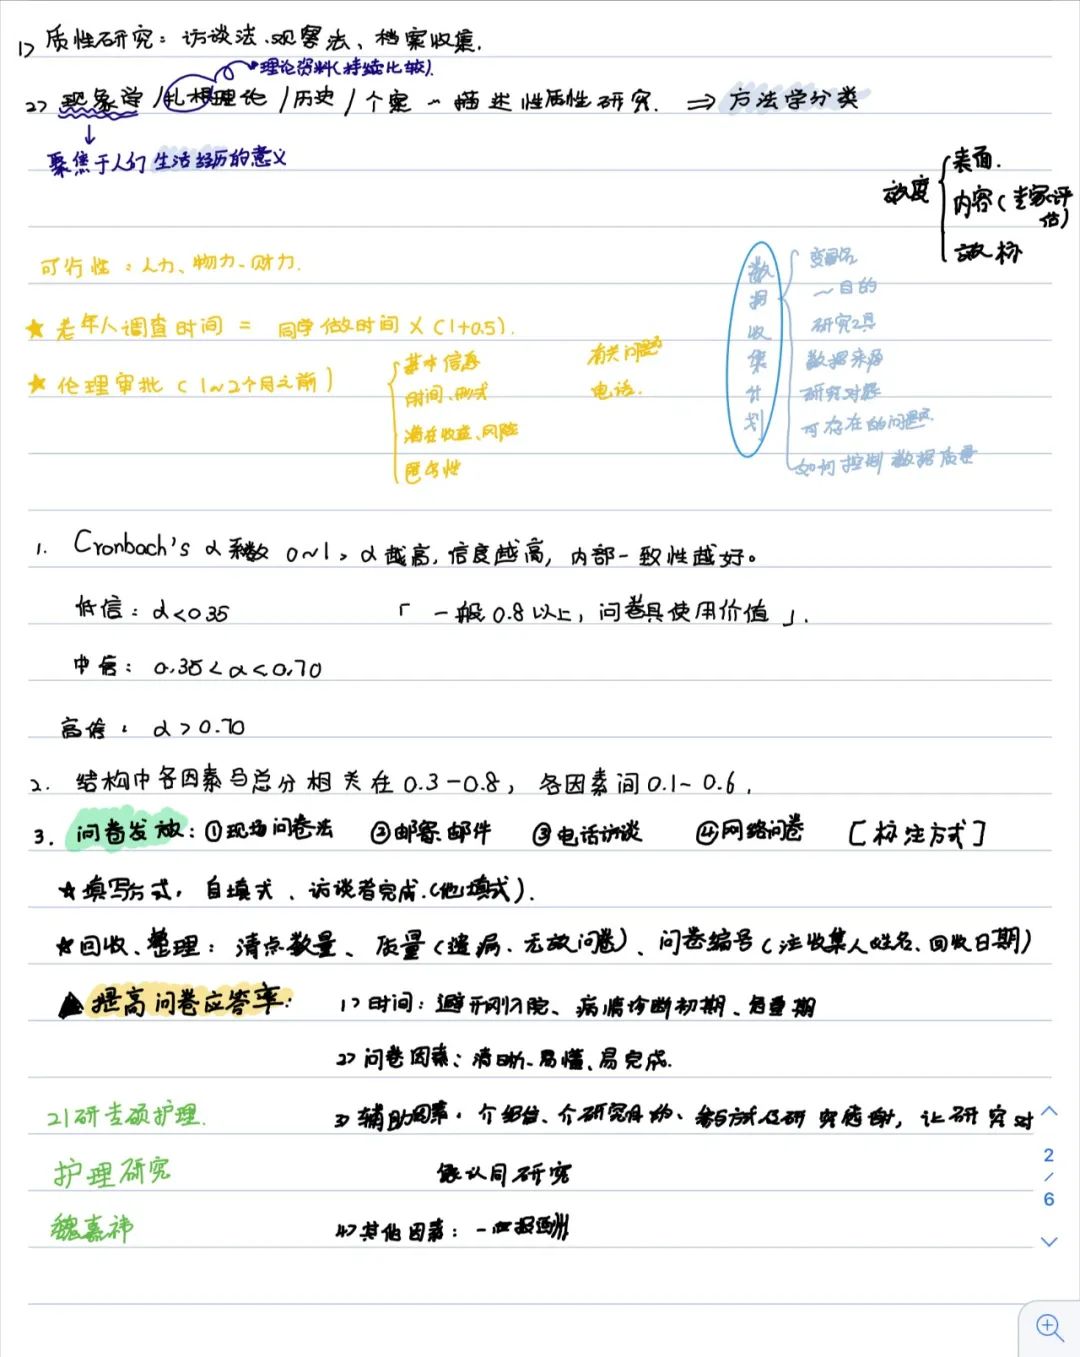 1> 质性研究：访谈法、观察法、档案收集.
理论资料(持续比较).
2> 现象学/扎根理论/历史/个案－描述性质性研究. ⇒ 方法学分类
↓
聚焦于人们生活经历的意义
效度
表面.
内容(专家评估)
效标
可行性：人力、物力、财力.
★ 老年人调查时间 = 同学做时间×(1+0.5).
★ 伦理审批(1~2个月之前)
基本信息
时间、形式
潜在收益、风险
匿名性
有关问题
电话.
数据收集计划
变量名
~目的
研究工具
数据来源
研究对象
可存在的问题
如何控制数据质量
1. Cronbach's α系数 0~1，α越高，信度越高，内部一致性越好。
低信：α<0.35 「一般0.8以上，问卷具使用价值」.
中信：0.35<α<0.70
高信：α>0.70
2. 结构中各因素与总分相关在0.3-0.8，各因素间0.1~0.6.
3. 问卷发放：①现场问卷法 ②邮寄、邮件 ③电话访谈 ④网络问卷 [标注方式]
★填写方式，自填式、访谈者完成.(他填式).
★回收、整理：清点数量、质量(遗漏、无效问卷)、问卷编号(注收集人姓名、回收日期)
▲提高问卷应答率：1>时间：避开刚入院、病情诊断初期、危重期
2>问卷因素：清晰、易懂、易完成.
3>辅助因素，介绍信、介研究目的、参与方式及研究感谢，让研究对
象认同研究
4>其他因素：一些报酬
21研专硕护理.
护理研究
魏嘉祎
2
/
6